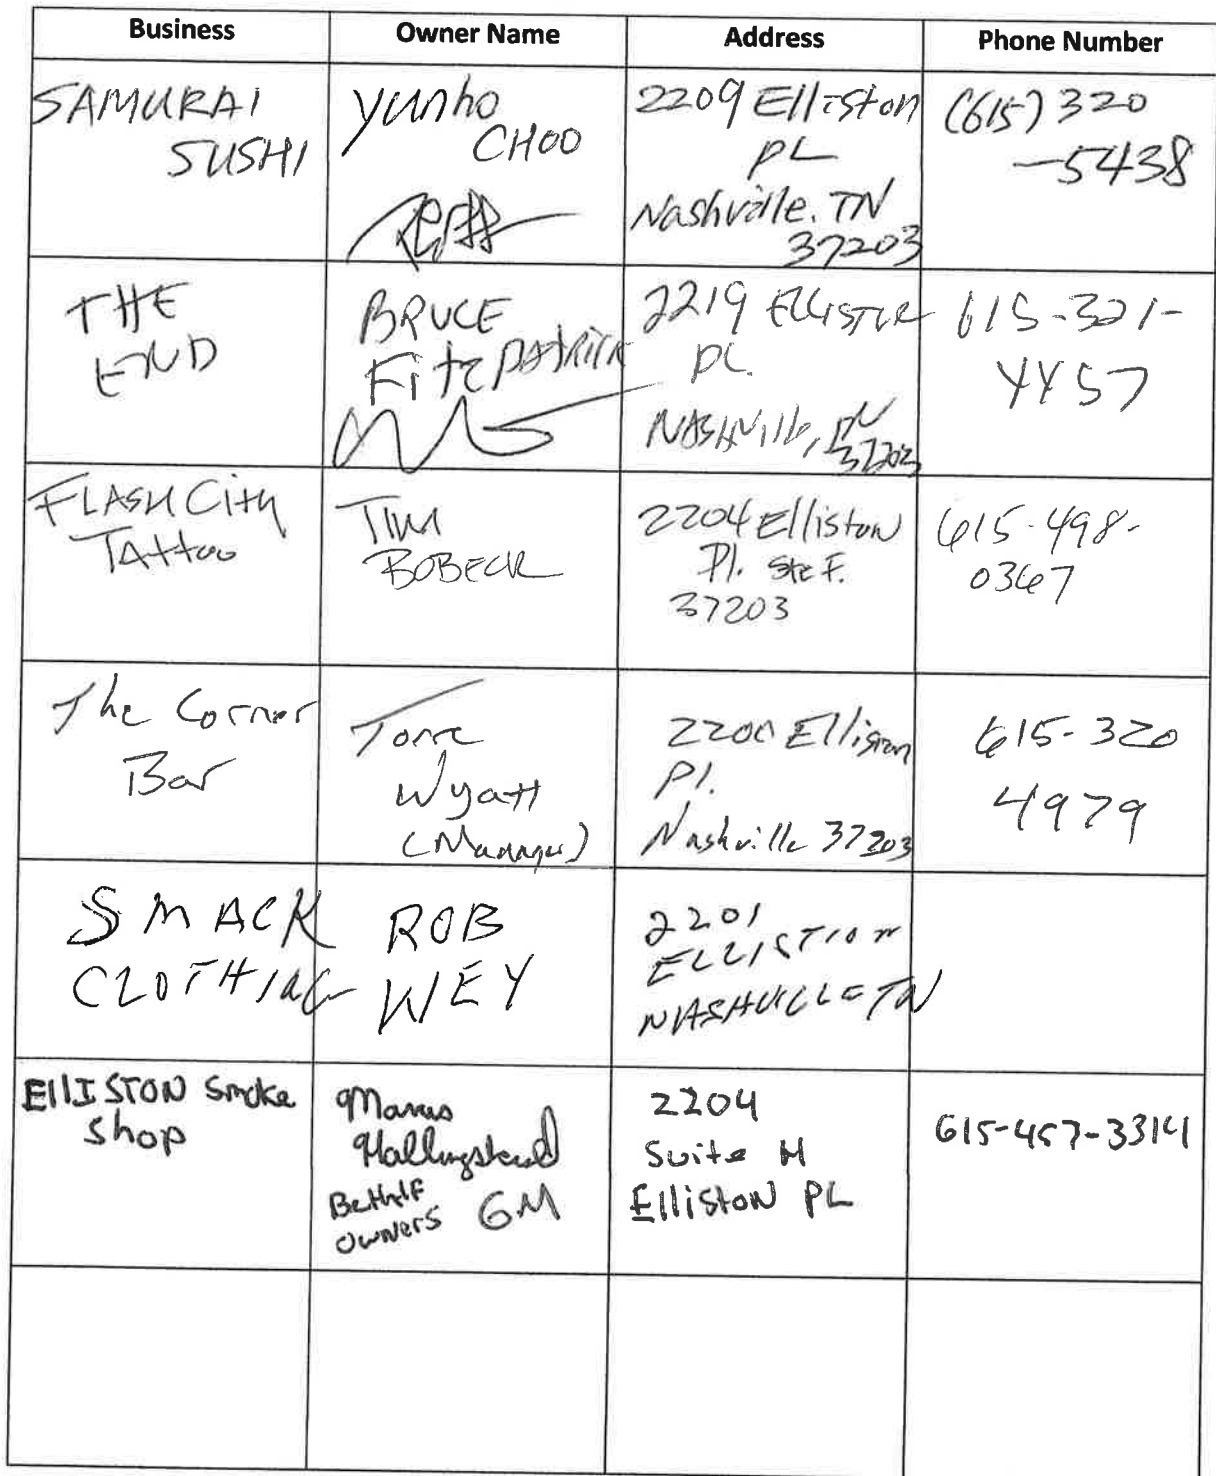 Business Owner Name Address Phone Number
SAMURAI
SUSHI
yunho
CHOO
2209 Elliston
PL
Nashville, TN
37203
(615) 320
-5438
THE
END
BRUCE
Fitzpatrick
2219 Elliston
PL.
NASHville, TN
37203
615-321-
4457
FLASH City
Tattoo
Tim
BOBECK
2204 Elliston
Pl. Ste F.
37203
615-498-
0367
The Corner
Bar
Wyatt
(Manager)
2200 Elliston
Pl.
Nashville 37203
615-320
4979
SMACK
CLOTHING
ROB
WEY
2201
ELLISTION
NASHVILLE TN
EllISTON Smoke
Shop
Behalf
Owners GM
2204
Suite H
Elliston PL
615-457-3314